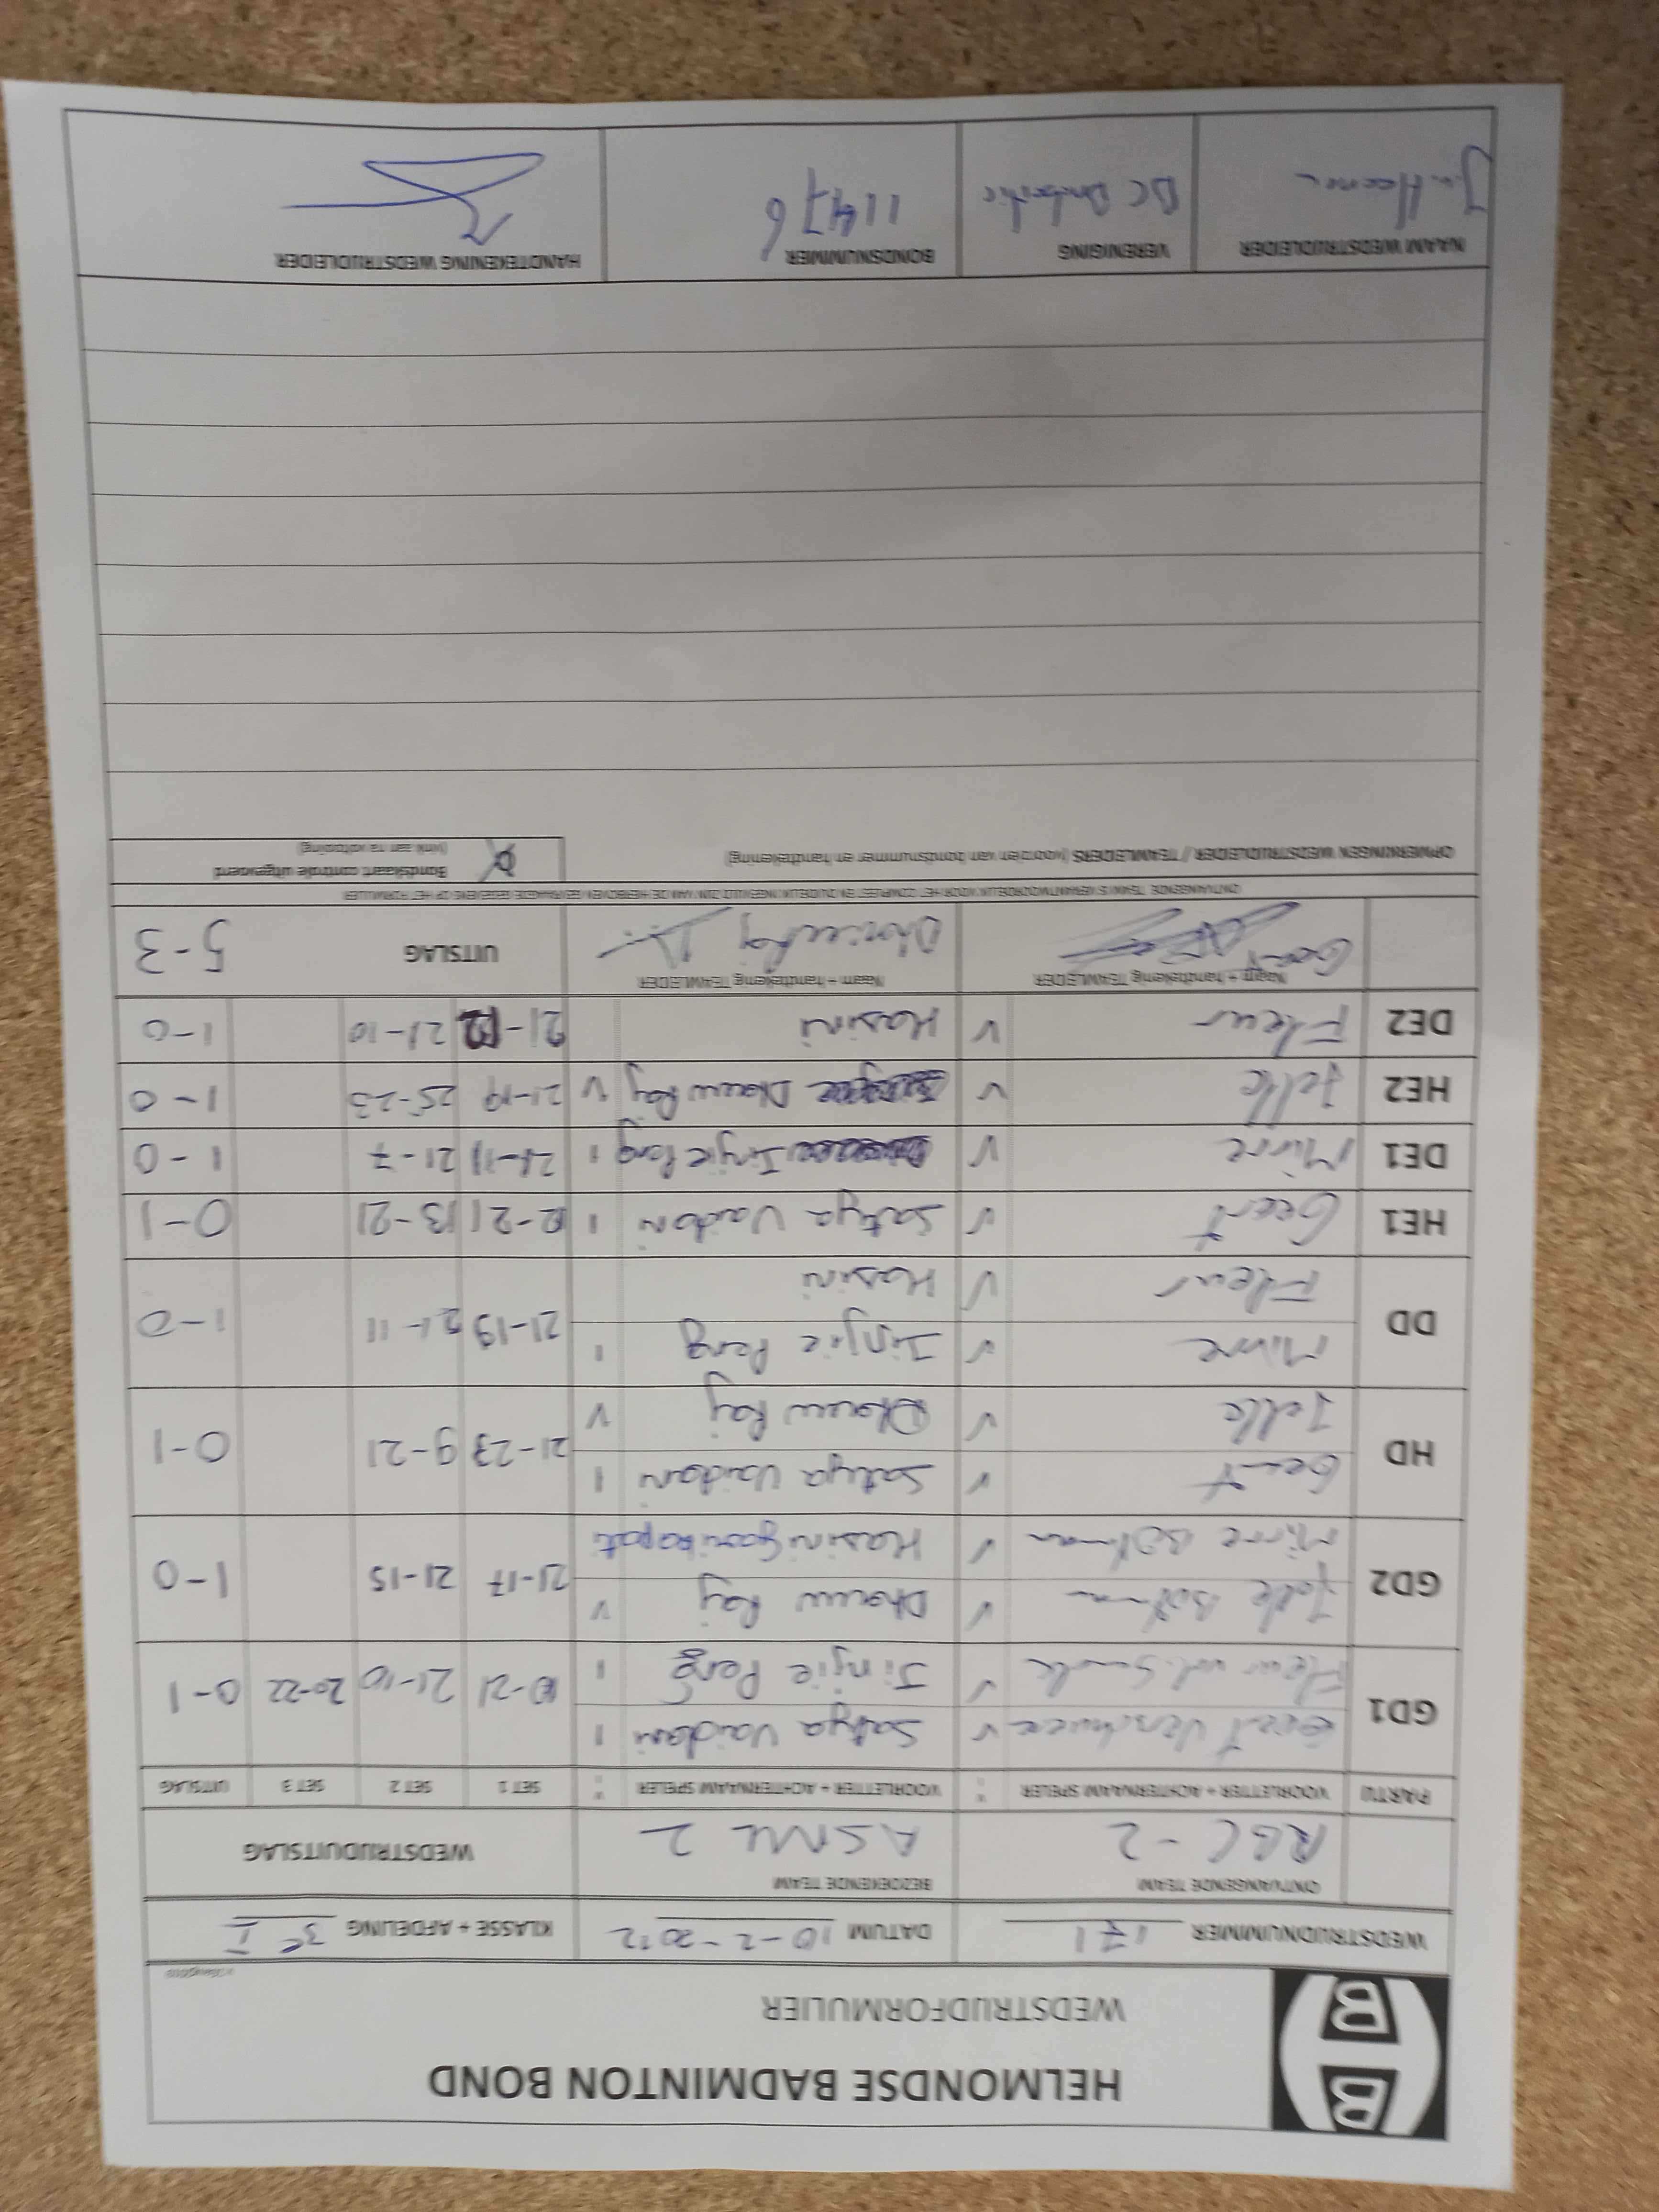 HELMONDSE BADMINTON BOND
WEDSTRIJDFORMULIER
WEDSTRIJDNUMMER 171 DATUM 10-2-2012 KLASSE + AFDELING 3e I
ONTVANGENDE TEAM BEZOEKENDE TEAM WEDSTRIJDUITSLAG
RBC-2 ASML 2
PARTIJ VOORLETTER + ACHTERNAAM SPELER VOORLETTER + ACHTERNAAM SPELER SET 1 SET 2 SET 3 UITSLAG
GD1 Geert Verschuren v Satya Vaidani 1
Fleur v Jinjie Peng 1 10-21 21-10 20-22 0-1
GD2 Jelle v Dhanu Raj v
Mirre v Hasini 21-17 21-15 1-0
HD Geert v Satya Vaidani 1
Jelle v Dhanu Raj v 21-23 9-21 0-1
DD Mirre v Jinjie Peng 1
Fleur v Hasini 21-19 21-11 1-0
HE1 Geert v Satya Vaidani 1 12-21 13-21 0-1
DE1 Mirre v Jinjie Peng 1 21-11 21-7 1-0
HE2 Jelle v Dhanu Raj v 21-19 25-23 1-0
DE2 Fleur v Hasini 21-12 21-10 1-0
Naam + handtekening TEAMLEIDER Naam + handtekening TEAMLEIDER
Geert Dhanu Raj UITSLAG 5-3
ONTVANGENDE TEAM IS VERANTWOORDELIJK VOOR HET COMPLEET EN DUIDELIJK INGEVULD ZIJN VAN DE HIERBOVEN GEVRAAGDE GEGEVENS OP HET FORMULIER
OPMERKINGEN WEDSTRIJDLEIDER / TEAMLEIDERS (voorzien van bondsnummer en handtekening)
Bondskaart controle uitgevoerd
(vink aan na voltooiing)
NAAM WEDSTRIJDLEIDER VERENIGING BONDSNUMMER HANDTEKENING WEDSTRIJDLEIDER
BC 11476